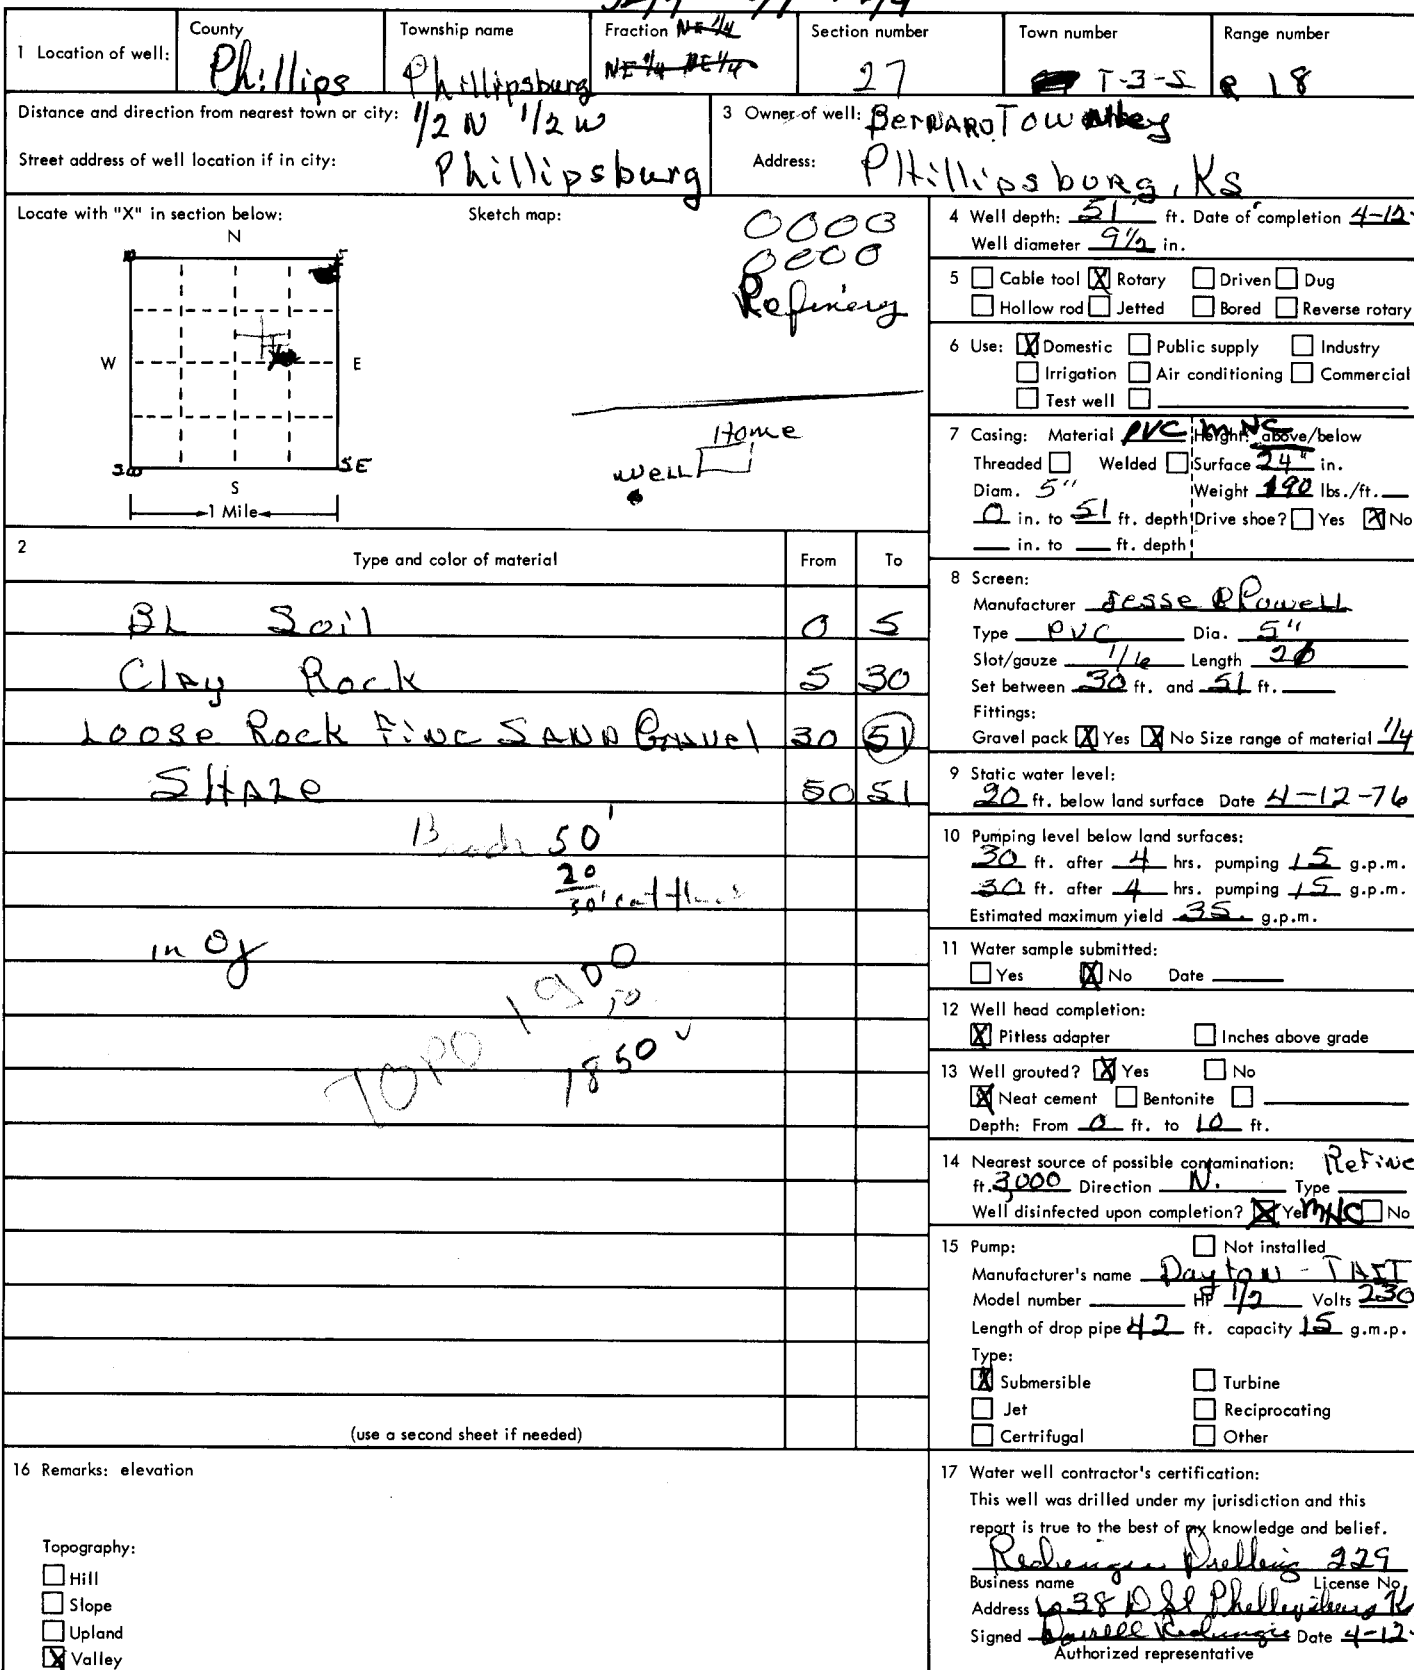 County
Township name
Fraction NE 1/4
Section number
Town number
Range number
1 Location of well:
Phillips
Phillipsburg
NE 1/4
27
T-3-S
R 18
Distance and direction from nearest town or city: 1/2 N 1/2 W
3 Owner of well: BERNARD
Street address of well location if in city: Phillipsburg
Address: Phillipsburg, KS
Locate with "X" in section below:
Sketch map:
N
W
E
SE
S
1 Mile
0000
0000
Refinery
Home
Well
4 Well depth: 51 ft. Date of completion 4-12-
Well diameter 9 1/2 in.
5 Cable tool X Rotary Driven Dug
Hollow rod Jetted Bored Reverse rotary
6 Use: X Domestic Public supply Industry
Irrigation Air conditioning Commercial
Test well
7 Casing: Material PVC Height: above/below
Threaded Welded Surface 24" in.
Diam. 5" Weight 190 lbs./ft.
0 in. to 51 ft. depth Drive shoe? Yes X No
in. to ft. depth
2
Type and color of material From To
BL Soil 0 5
Clay Rock 5 30
Loose Rock Fine SAND Gravel 30 51
SHALE 50 51
50'
20
30'
in
TOPO 1900
50
1850
(use a second sheet if needed)
8 Screen:
Manufacturer Jesse Powell
Type PVC Dia. 5"
Slot/gauze 1/16 Length 20
Set between 30 ft. and 51 ft.
Fittings:
Gravel pack X Yes X No Size range of material 1/4
9 Static water level:
20 ft. below land surface Date 4-12-76
10 Pumping level below land surfaces:
30 ft. after 4 hrs. pumping 15 g.p.m.
30 ft. after 4 hrs. pumping 15 g.p.m.
Estimated maximum yield 35 g.p.m.
11 Water sample submitted:
Yes X No Date
12 Well head completion:
X Pitless adapter Inches above grade
13 Well grouted? X Yes No
X Neat cement Bentonite
Depth: From 0 ft. to 10 ft.
14 Nearest source of possible contamination: Refine
ft. 3,000 Direction N. Type
Well disinfected upon completion? X Yes MHC No
15 Pump: Not installed
Manufacturer's name Dayton - TAIT
Model number HP 1/2 Volts 230
Length of drop pipe 42 ft. capacity 15 g.m.p.
Type:
X Submersible Turbine
Jet Reciprocating
Certrifugal Other
16 Remarks: elevation
Topography:
Hill
Slope
Upland
X Valley
17 Water well contractor's certification:
This well was drilled under my jurisdiction and this
report is true to the best of my knowledge and belief.
Drilling 229
Business name License No.
Address 38 D St Phillipsburg
Signed Date 4-12-
Authorized representative